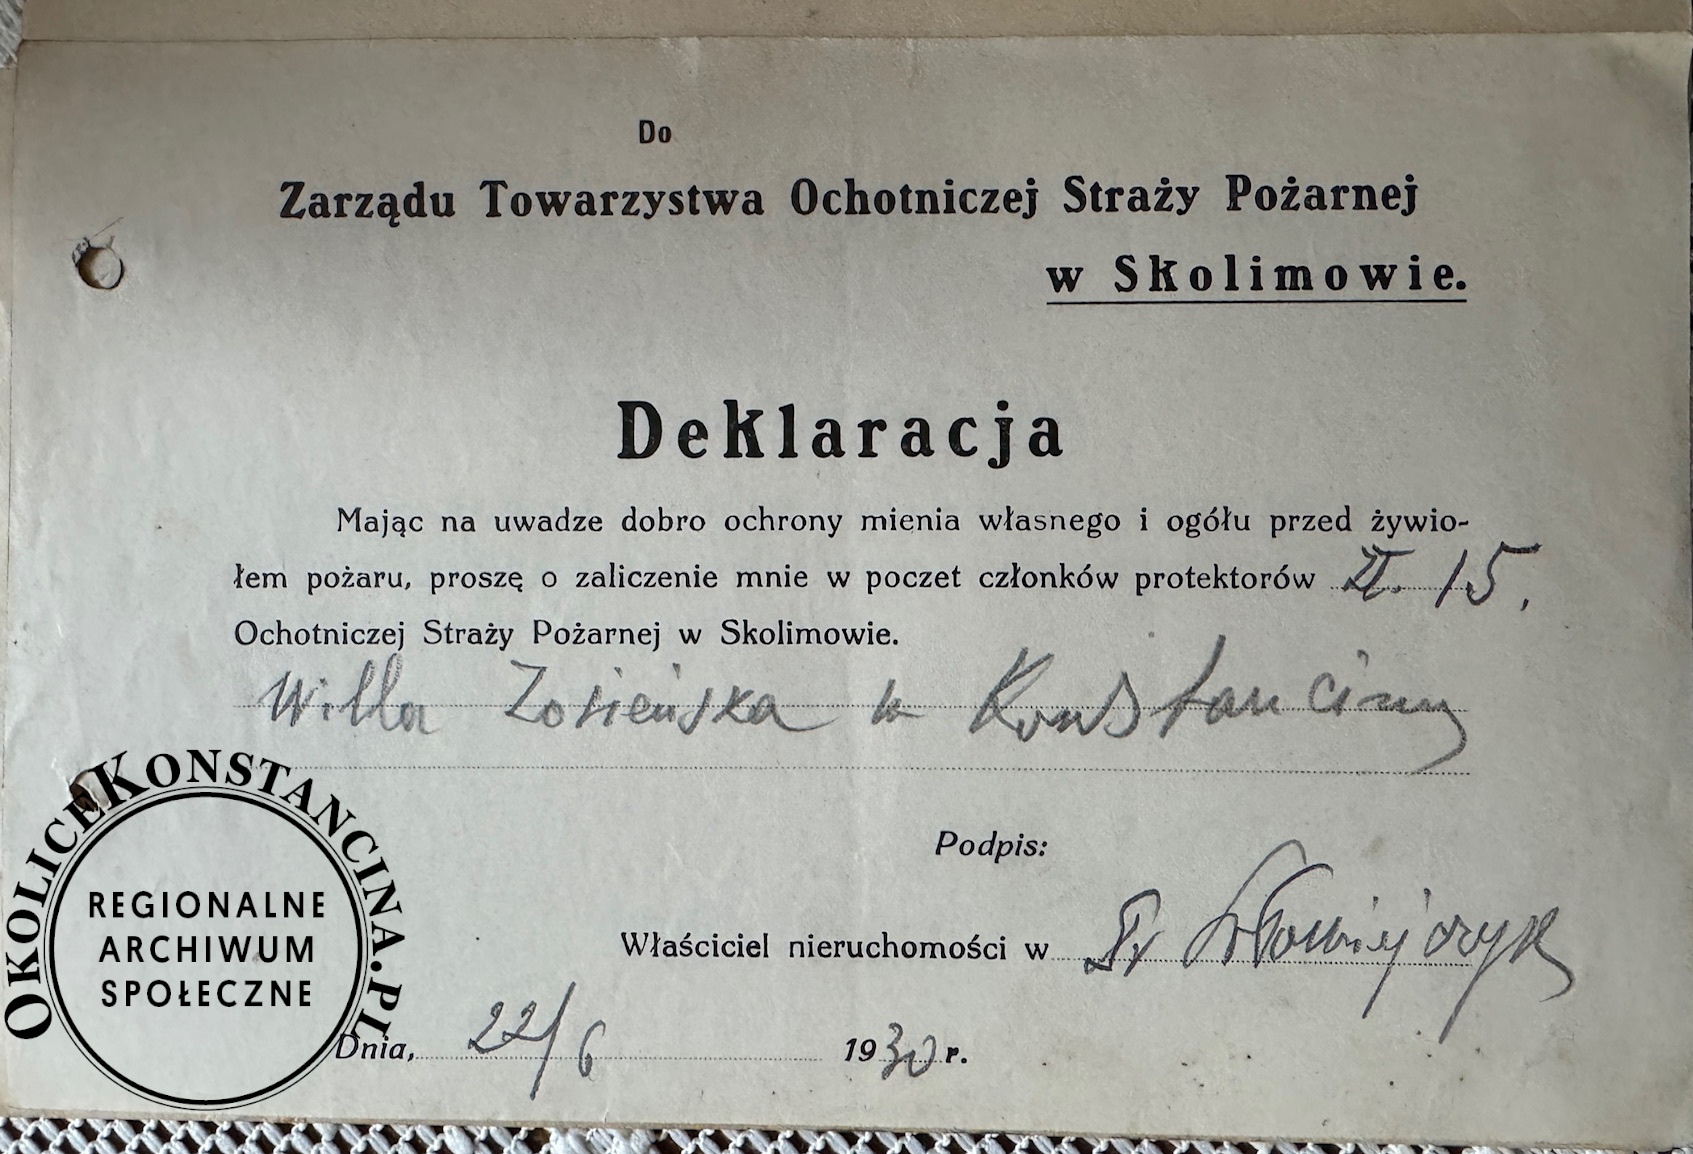 Do
Zarządu Towarzystwa Ochotniczej Straży Pożarnej
w Skolimowie.
Deklaracja
Mając na uwadze dobro ochrony mienia własnego i ogółu przed żywio-
łem pożaru, proszę o zaliczenie mnie w poczet członków protektorów Zł. 15,
Ochotniczej Straży Pożarnej w Skolimowie.
Willa Zosieńska w Konstancinie
Podpis:
Właściciel nieruchomości w
Dnia, 22/6 1930 r.
OKOLICEKONSTANCINA.PL
REGIONALNE
ARCHIWUM
SPOŁECZNE